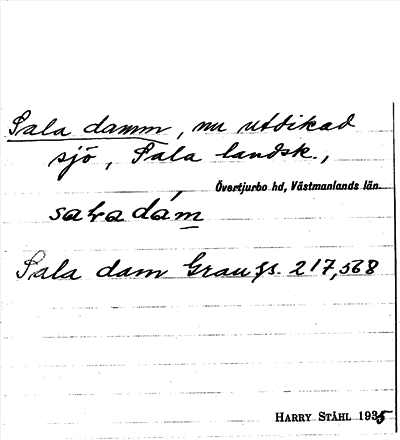 Sala damm, nu utdikad
sjö, Sala landsk.,
Övertjurbo hd, Västmanlands län.
sala dám
Sala dam Grau gs. 217,568
HARRY STÅHL 1935